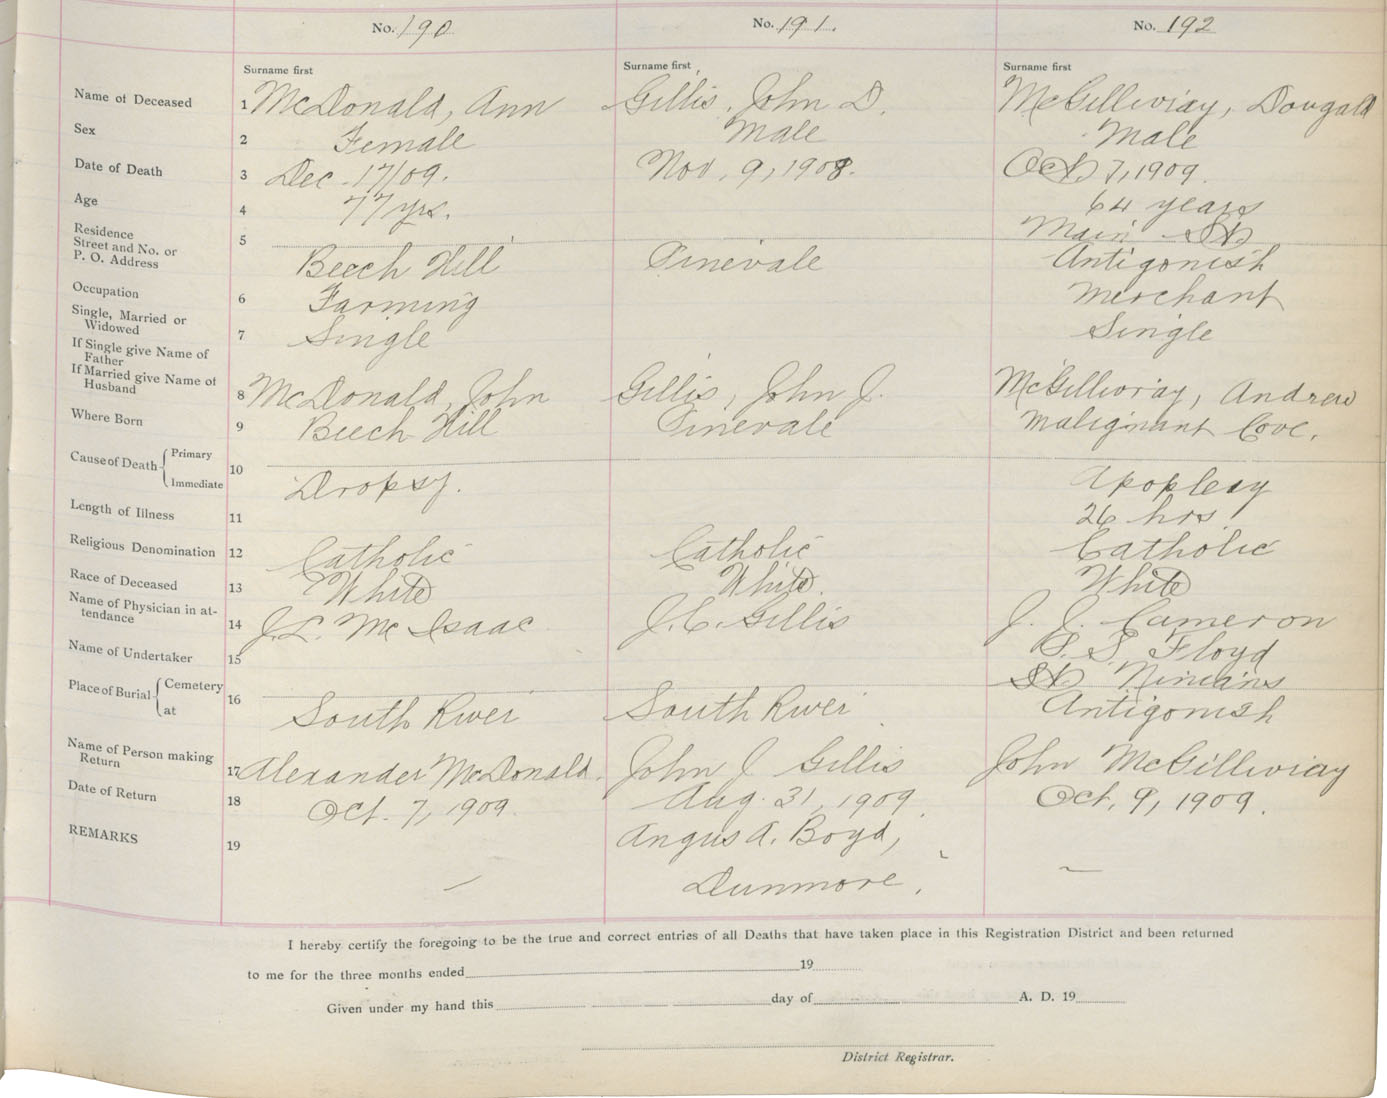 No. 190
No. 191.
No. 192
Surname first
Surname first
Surname first
Name of Deceased 1 McDonald, Ann Gillis, John D. McGillivray, Dougald
Sex 2 Female Male Male
Date of Death 3 Dec. 17/09. Nov. 9, 1908. Oct. 7, 1909.
Age 4 77 yrs. 64 years
Residence 5 Main St.
Street and No. or
P. O. Address Beech Hill Pinevale Antigonish
Occupation 6 Farming Merchant
Single, Married or
Widowed 7 Single Single
If Single give Name of
Father
If Married give Name of
Husband 8 McDonald, John Gillis, John J. McGillivray, Andrew
Where Born 9 Beech Hill Pinevale Malignant Cove.
Cause of Death Primary
10
Immediate Dropsy. Apoplexy
Length of Illness 11 26 hrs.
Religious Denomination 12 Catholic Catholic Catholic
Race of Deceased 13 White White. White
Name of Physician in at-
tendance 14 J. L. McIsaac J. C. Gillis J. J. Cameron
Name of Undertaker 15 P. S. Floyd
Place of Burial Cemetery 16 St. Ninians
at South River South River. Antigonish
Name of Person making
Return 17 Alexander McDonald. John J Gillis John McGillivray
Date of Return 18 Oct. 7, 1909. Aug. 31, 1909. Oct. 9, 1909.
REMARKS 19 — Angus A. Boyd, —
Dunmore.
I hereby certify the foregoing to be the true and correct entries of all Deaths that have taken place in this Registration District and been returned
to me for the three months ended 19
Given under my hand this day of A. D. 19
District Registrar.